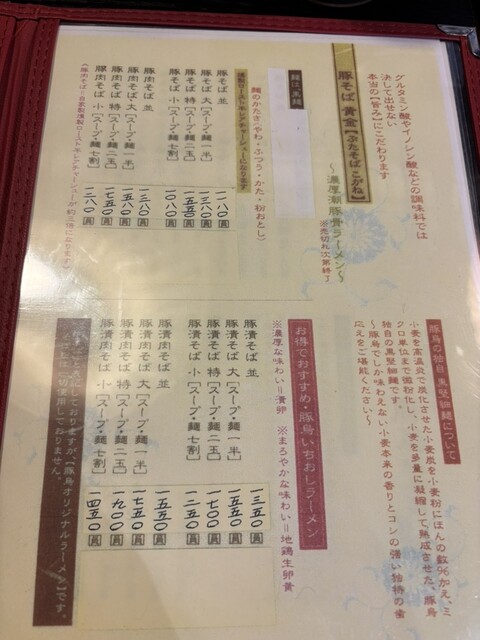 グルタミン酸やイノシン酸などの調味料では
決して出せない
本当の【旨み】にこだわります
豚そば 黄金【ぶたそば こがね】
～濃厚潮豚骨ラーメン～
※売切れ次第終了
麺は、生麺
麺のかたさ〈やわ・ふつう・かた・粉おとし〉
燻製ローストポレンタチャーシューになります
豚そば 並 一一八〇 圓
豚そば 大 [スープ・麺 一半] 一三八〇 圓
豚そば 特 [スープ・麺 二玉] 一五五〇 圓
豚そば 小 [スープ・麺 七割] 一〇八〇 圓
豚肉そば 並 一三八〇 圓
豚肉そば 大 [スープ・麺 一半] 一五八〇 圓
豚肉そば 特 [スープ・麺 二玉] 一七五〇 圓
豚肉そば 小 [スープ・麺 七割] 一二八〇 圓
豚鳥の独自 黒堅細麺について
小麦を高温炎で炭化させた小麦炭を小麦粉にほんの数%加え、ミ
クロ単位まで微粉化し、小麦を多量に凝縮して熟成させた、豚鳥
独自の黒堅細麺です。
～豚鳥でしか味わえない小麦本来の香りとコシの強い独特の歯
応えをご堪能ください～
お得でおすすめ・豚鳥いちおしラーメン
※濃厚な味わい＝漬卵 ※まろやかな味わい＝地鶏生卵黄
豚漬そば 並 一三五〇 圓
豚漬そば 大 [スープ・麺 一半] 一五五〇 圓
豚漬そば 特 [スープ・麺 二玉] 一七〇〇 圓
豚漬そば 小 [スープ・麺 七割] 一二五〇 圓
豚漬肉そば 並 一五五〇 圓
豚漬肉そば 大 [スープ・麺 一半] 一七五〇 圓
豚漬肉そば 特 [スープ・麺 二玉] 一九〇〇 圓
豚漬肉そば 小 [スープ・麺 七割] 一四五〇 圓
にしておりますが、【豚鳥オリジナルラーメン】です。
一切使用しておりません。